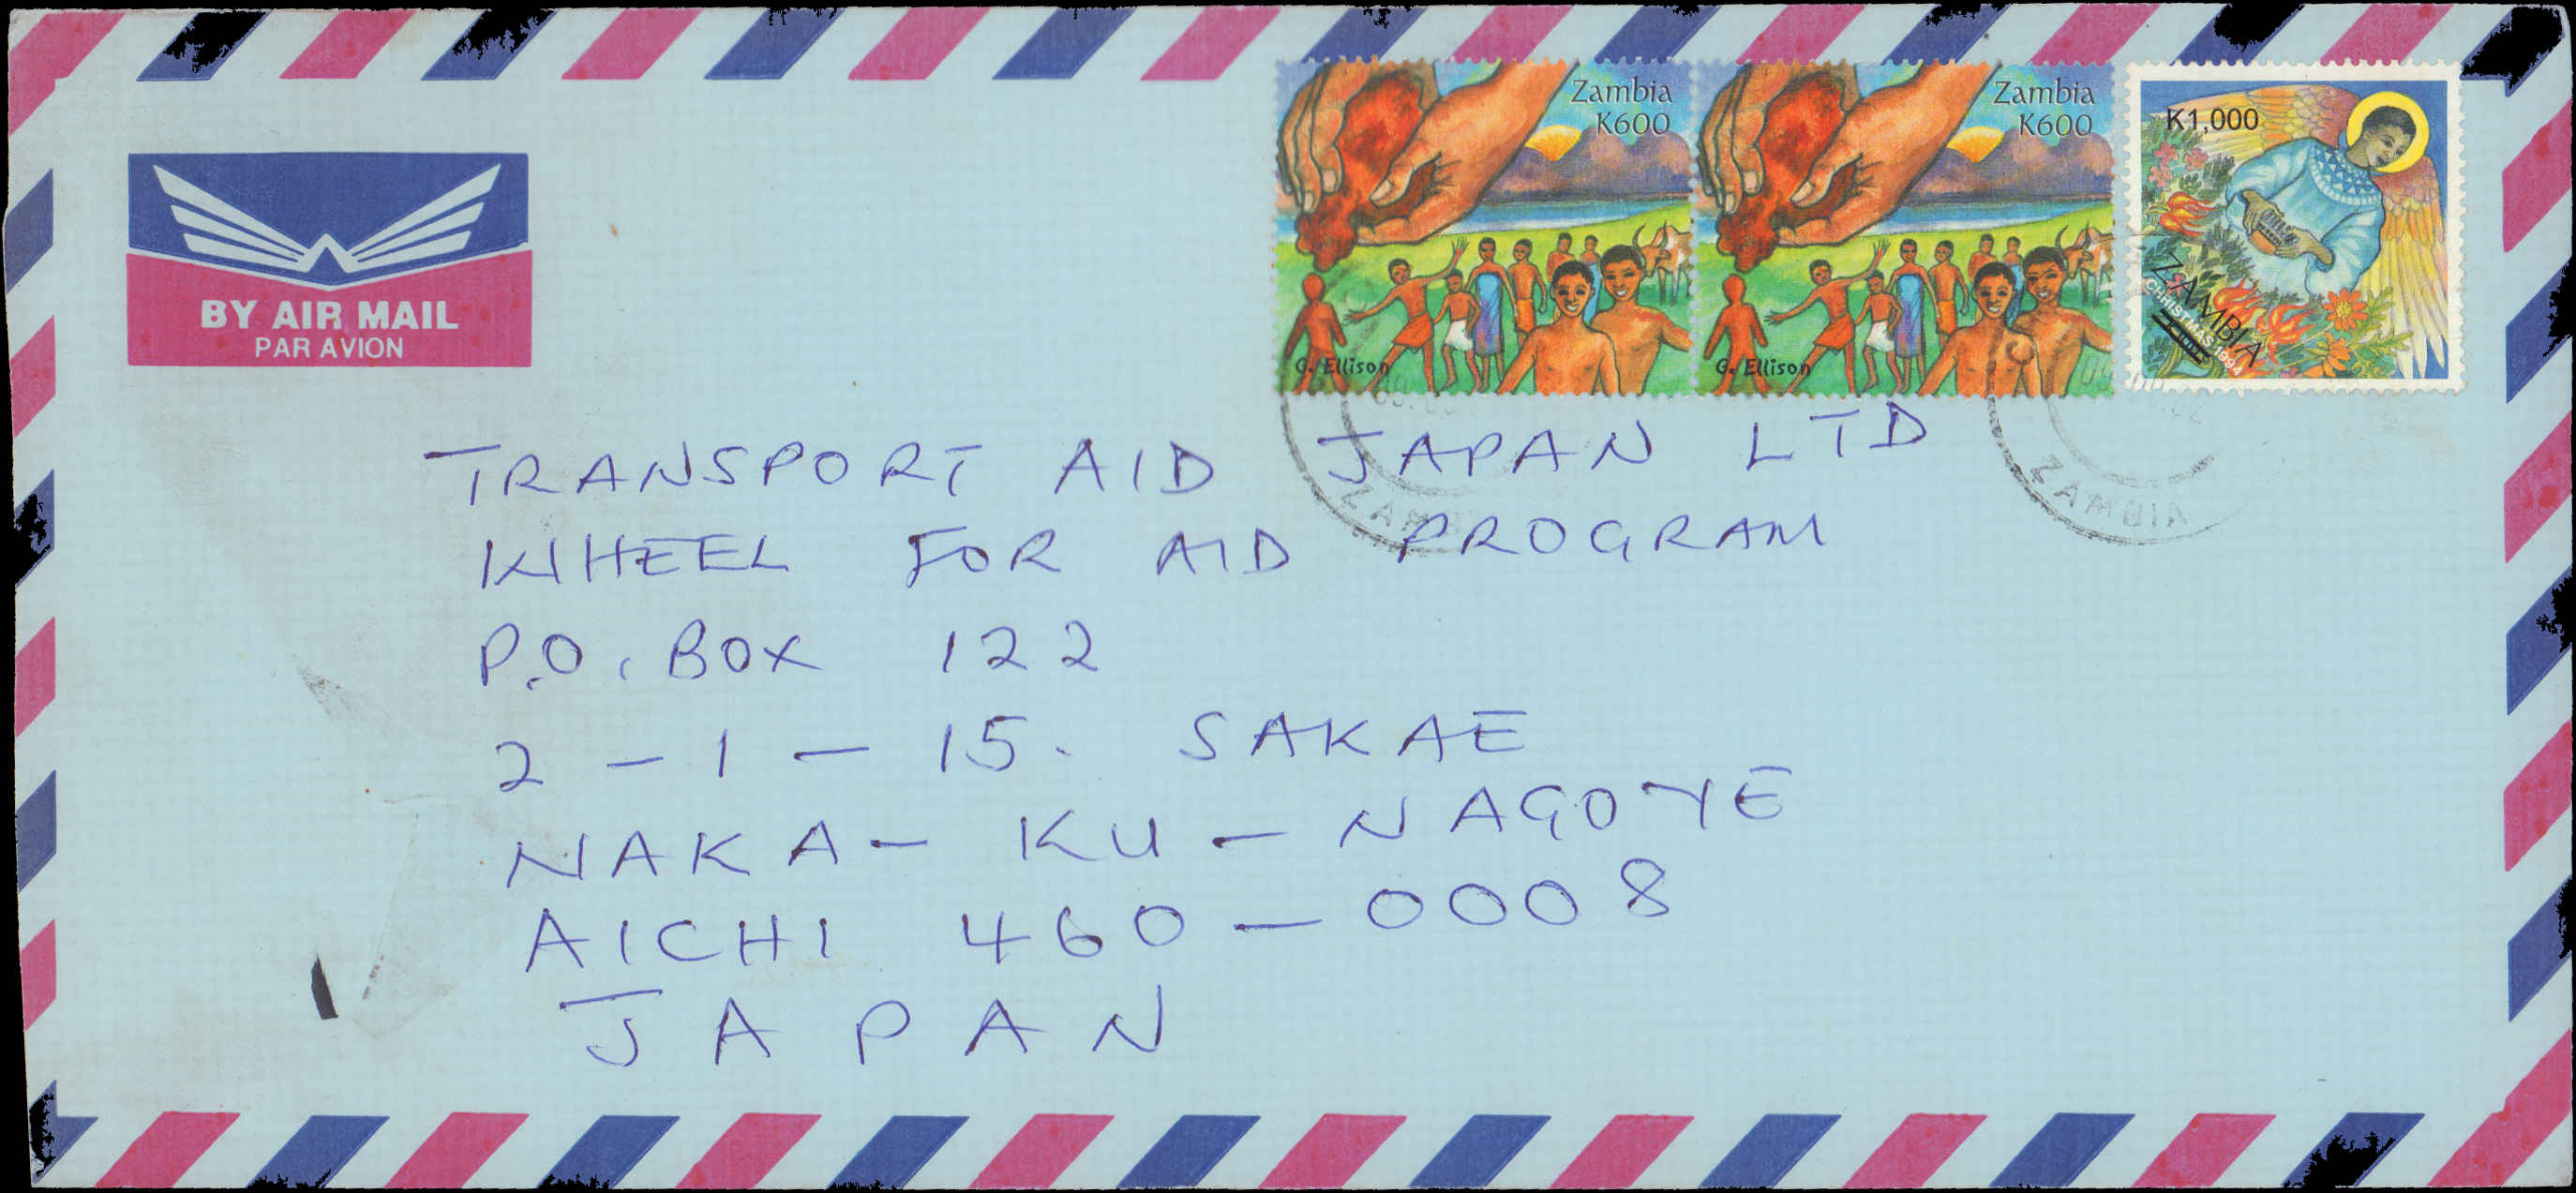 BY AIR MAIL
PAR AVION
Zambia
K600
G. Ellison
Zambia
K600
G. Ellison
K1,000
ZAMBIA
CHRISTMAS 1994
TRANSPORT AID JAPAN LTD
WHEEL FOR AID PROGRAM
P.O. BOX 122
2 - 1 - 15. SAKAE
NAKA - KU - NAGOYE
AICHI 460 - 0008
JAPAN
ZAMBIA